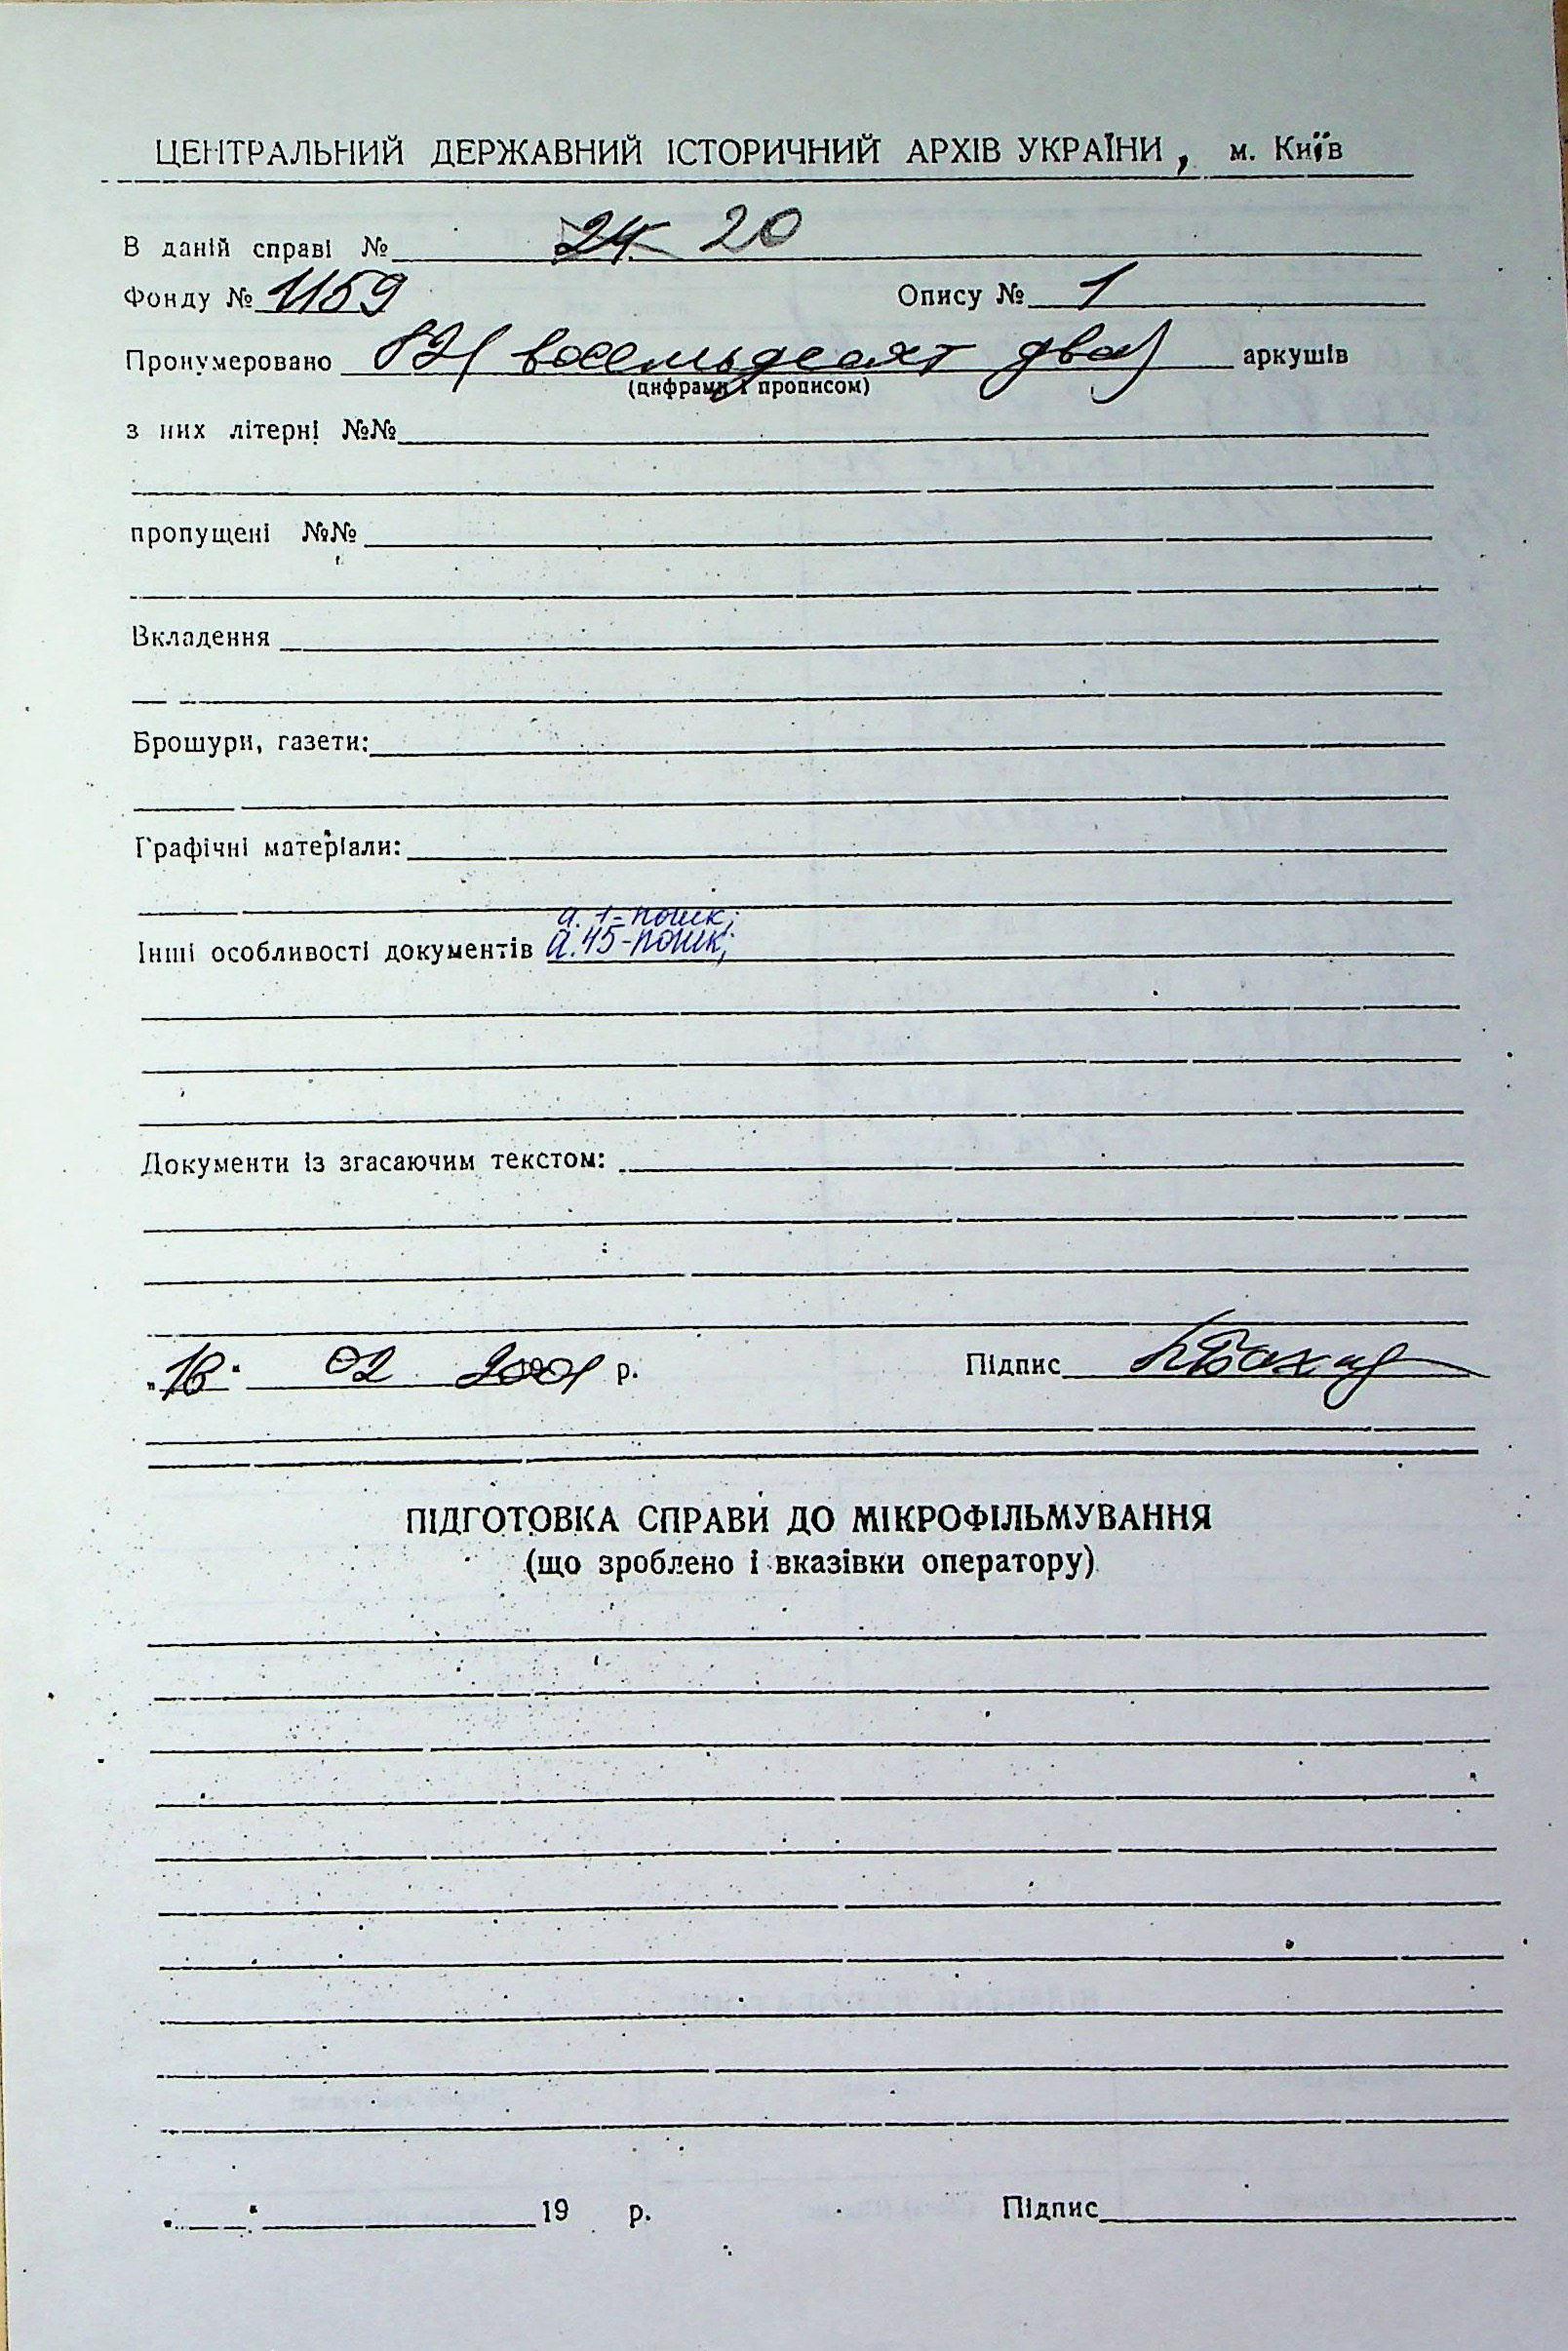 ЦЕНТРАЛЬНИЙ ДЕРЖАВНИЙ ІСТОРИЧНИЙ АРХІВ УКРАЇНИ, м. Київ
В даній справі № 24 20
Фонду № 1159 Опису № 1
Пронумеровано 82 (восемьдесят два) аркушів
(цифрами і прописом)
з них літерні №№
пропущені №№
Вкладення
Брошури, газети:
Графічні матеріали:
а. 1-пошк;
Інші особливості документів а.45-пошк;
Документи із згасаючим текстом:
" " 02 р. Підпис
ПІДГОТОВКА СПРАВИ ДО МІКРОФІЛЬМУВАННЯ
(що зроблено і вказівки оператору)
" " 19 р. Підпис